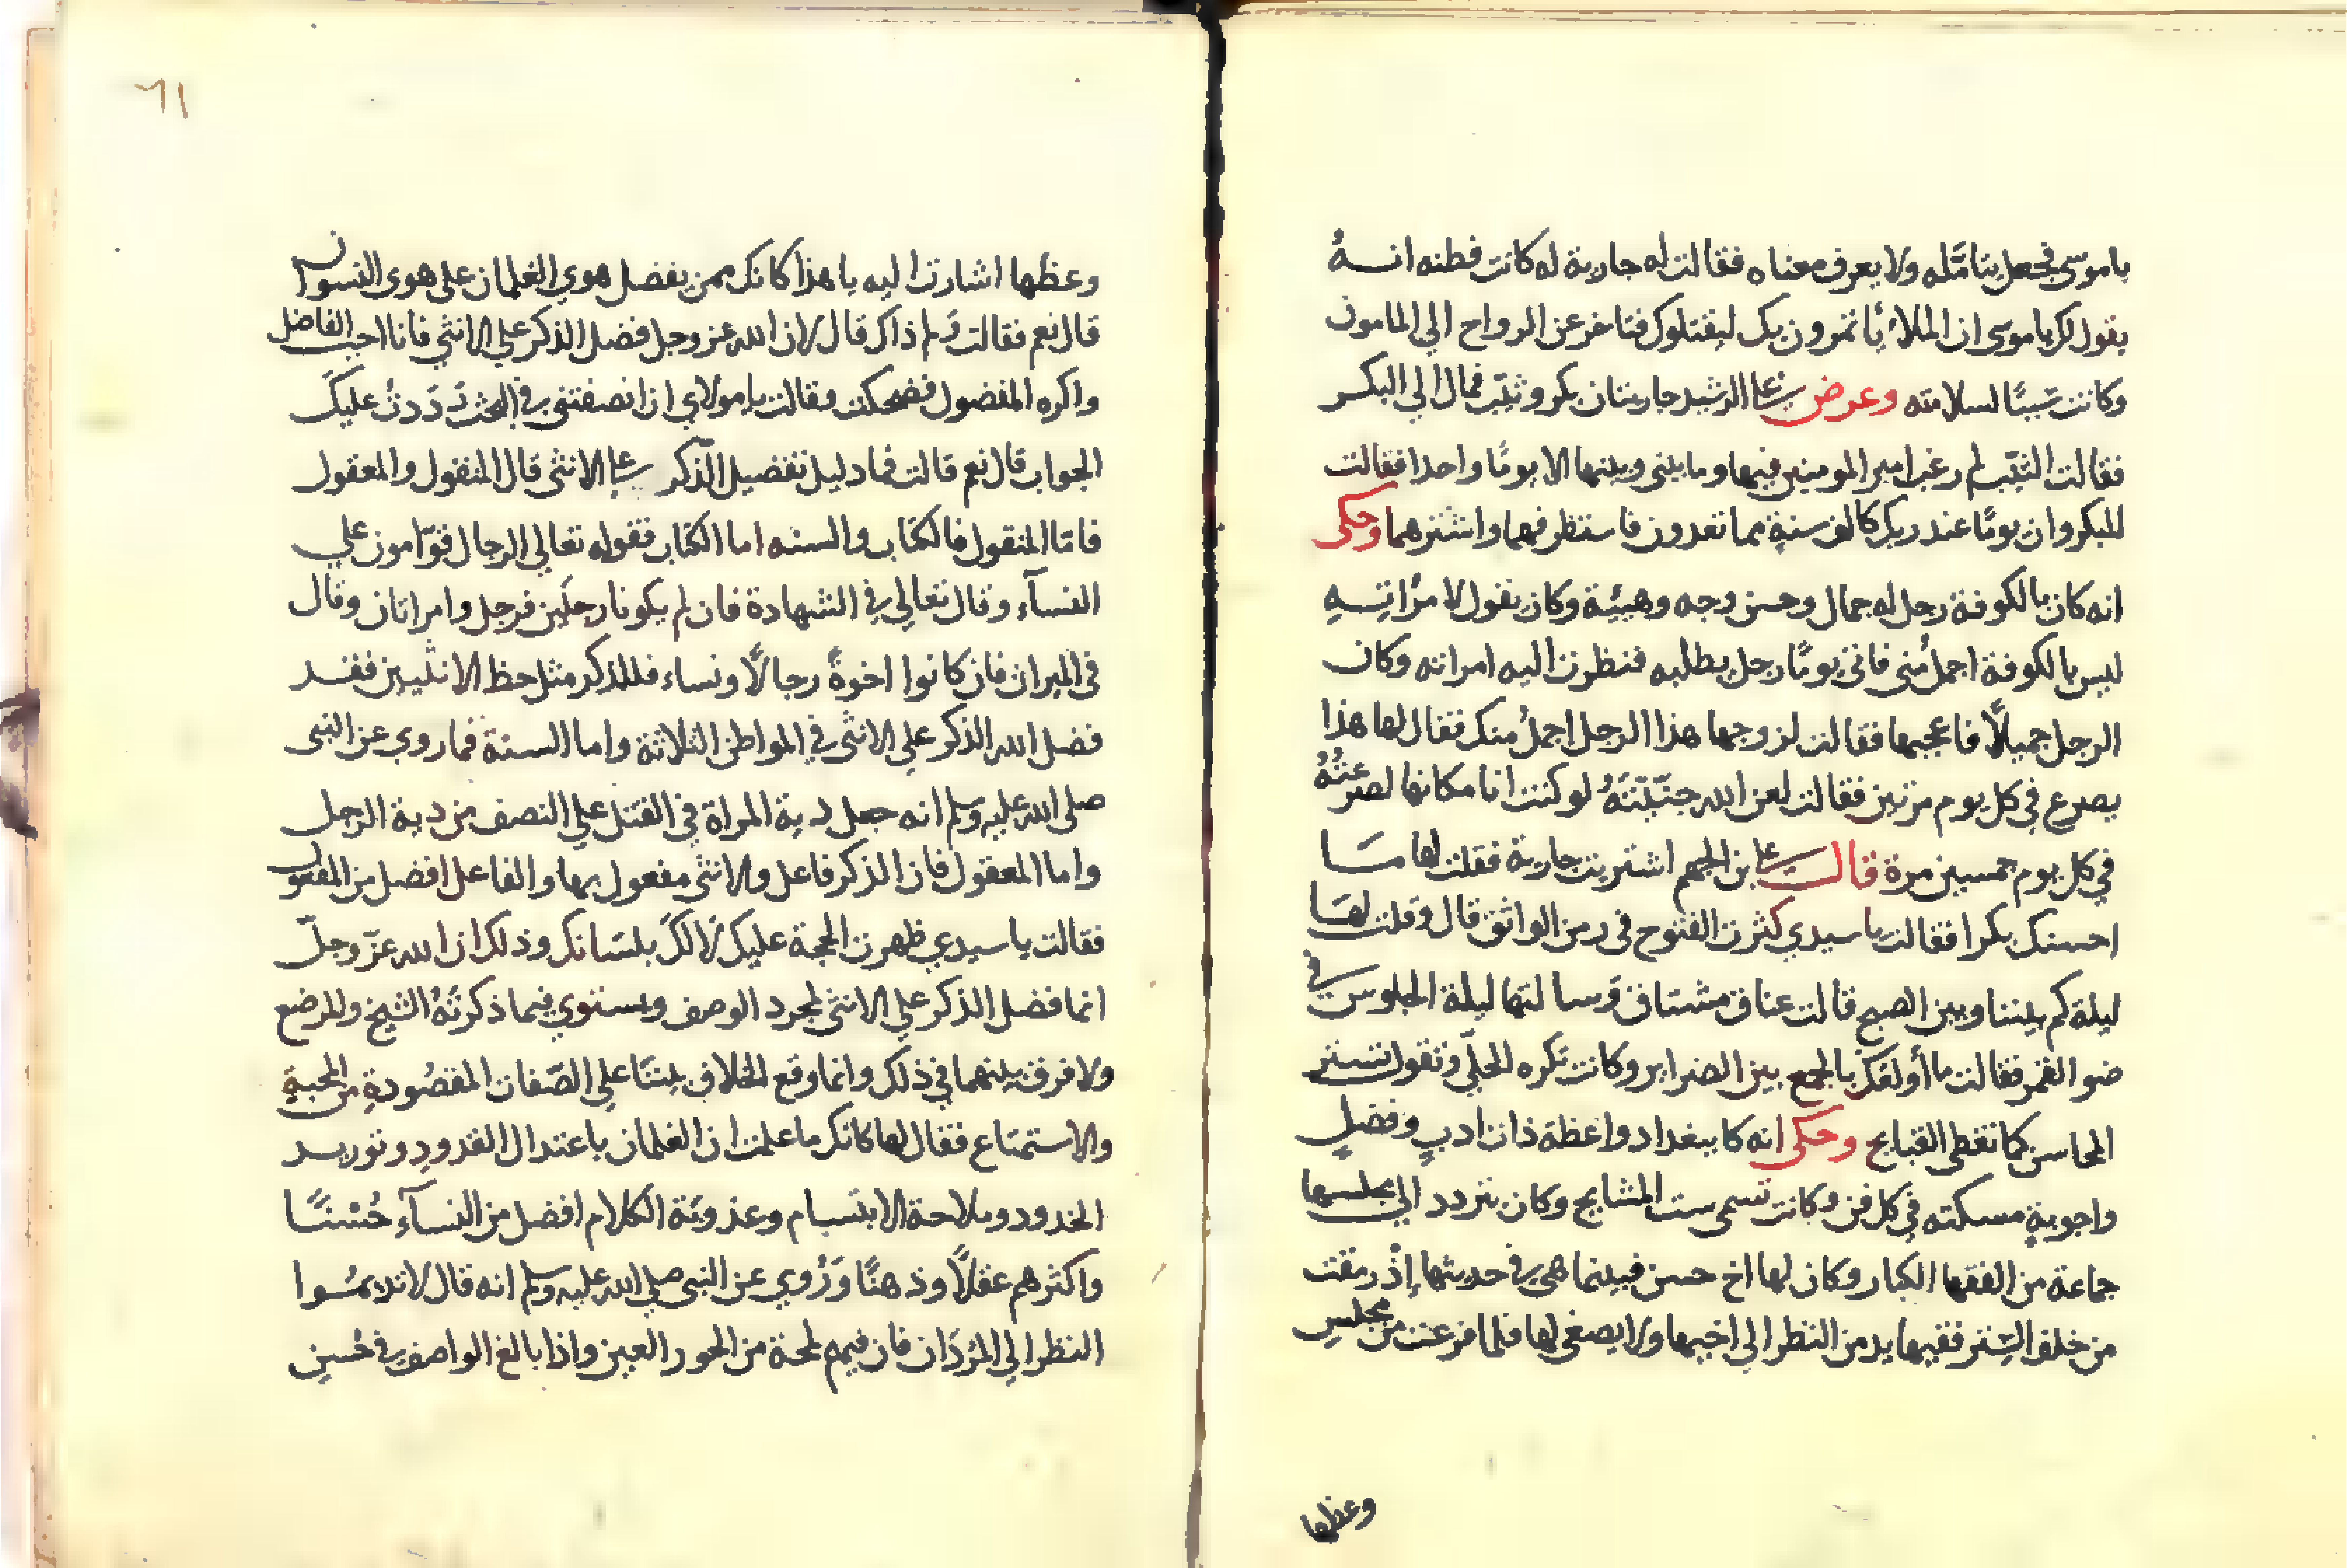 ياموسى فجعل يتامّله ولا يعرف معناه فقالت له جارية له كانت فطنه انهُ
يقول لك ياموسى ان الملاء يأتمرون بك ليقتلوك فتاخر عن الرواح الي المامون
وكانت سببًا لسلامته وعرض على الرشيد جاريتان بكر وثيّب فمال الي البكر
فقالت الثيّب لم رغب امير المومنين فيها وما بيني وبينها الا يومًا واحدا فقالت
البكر وان يومًا عند ربك كالف سنةٍ مما تعدون فاستظرفهما واشترهما وحكى
انه كان بالكوفة رجل له جمال وحسن وجه وهيئة وكان يقول لامرُاتِهِ
ليس بالكوفة اجملُ مني فاتى يومًا رجل يطلبه فنظرت اليه امراته وكان
الرجل جميلًا فاعجبها فقالت لزوجها هذا الرجل اجملُ منك فقال لها هذا
يصرع في كل يوم مرتين فقالت لعن الله جنّيّتَهُ لو كنت انا مكانها لصرعتُهُ
في كل يوم خمسين مرة قال على بن الجهم اشتريت جارية فقلت لها ما
احسنك بكرا فقالت يا سيدي كثرت الفتوح في زمن الواثق قال وقلت لها
ليلة كم بيننا وبين الصبح قالت عناق مشتاق وسالتها ليلة الجلوس في
ضو القمر فقالت ما أولعَكَ بالجمع بين الضراير وكانت تكره الحليّ وتقول تستر
المحاسن كما تغطى القبايح وحكى انه كا ببغداد واعظة ذات ادبٍ وفضلٍ
واجوبةٍ مسكته في كل فن وكانت تسمى ست المشايخ وكان يتردد الي مجلسها
جماعة من الفقها الكبار وكان لها اخ حسن فبينما هي في حديثها إذْ رمقت
من خلف السِتر فقيها يدمن النظر الي اخيها ولا يصغى لها فلما فرغت من مجلس
وعظها
٦١
وعظها اشارت اليه يا هذا كانك ممن يفضل هوي الغلمان على هوى النسوان
قال نعم فقالت وَلم ذاك قال لان الله عز وجل فضل الذكر علي الانثي فانا احب الفاضل
واكره المفضول فضحكت وقالت يا مولاي ان انصفتني في البحث رَدَدتُ عليكَ
الجواب قال نعم قالت فما دليل تفضيل الذّكر على الانثى قال المنقول والمعقول
فامّا المنقول فالكتاب والسنه اما الكتاب فقوله تعالي الرجال قوّامون علي
النسآء وقال تعالي في الشهادة فان لم يكونا رجلَين فرجل وامراتان وقال
في الميراث فان كانوا اخوةً رجالًا ونساء فللذكر مثل حظ الانثيين فقد
فضل الله الذكر علي الانثى في المواطن الثلاثة واما السنة فما روي عن النبى
صلى الله عليه وسلم انه جعل دية المراة في القتل علي النصف من دية الرجل
واما المعقول فان الذكر فاعل والانثى مفعول بها والفاعل افضل من المفعول
فقالت يا سيدي ظهرت الحجة عليك لَالكَ بلسَانك وذلك ان الله عزّ وجلّ
انما فضل الذكر علي الانثى لمجرد الوصف ويستوي فيما ذكرتَهُ الشيخ والرضع
ولا فرق بينهما في ذلك وانما وقع الخلاف بيننَا علي الصّفات المقصُودةِ من المحبةِ
والاستمتاع فقال لها كانك ما علمت ان الغلمان باعتدال القدودِ وتوريد
الخدود وملاحة الابتسام وعذوبَة الكلام افضل من النسآء حُسْنًا
واكثرهم عقلًا وذهنًا وَرُوي عن النبى صلى الله عليه وسلم انه قال لا تديمُوا
النظر الي المُردَان فان فيهم لمحة من الحور العين واذا بالغ الواصف في حُسنِ